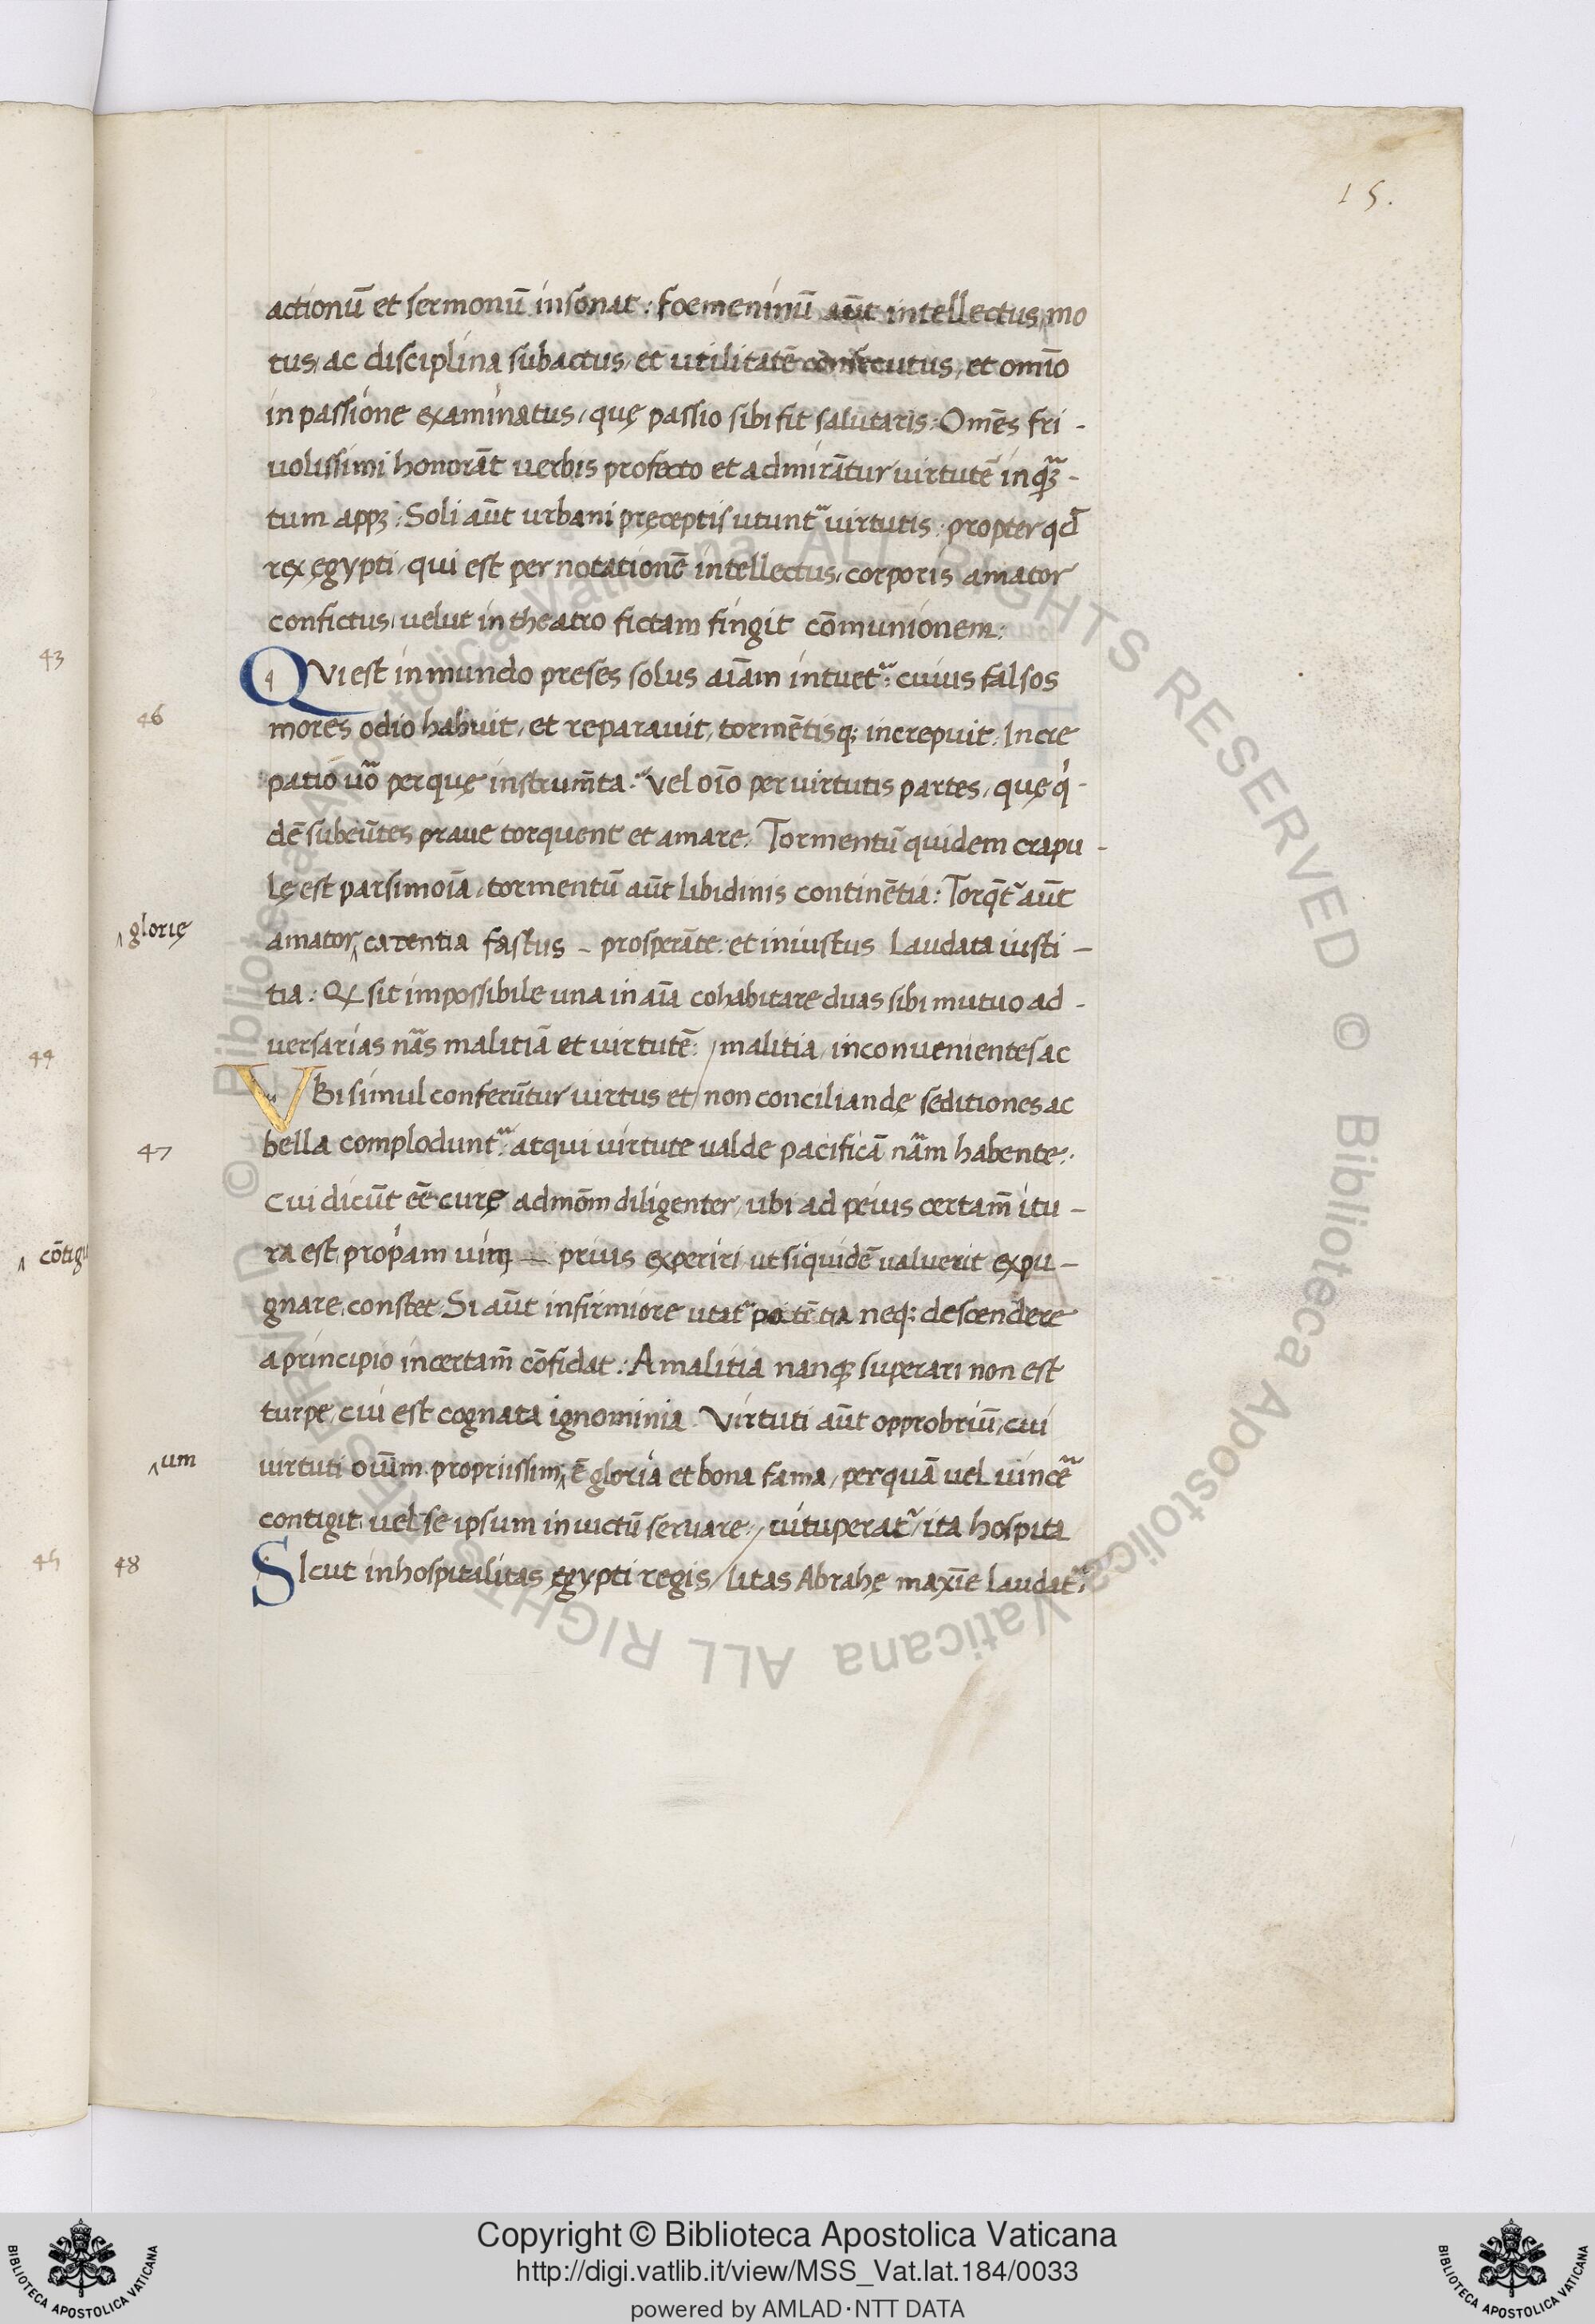 15.
actionū et sermonū insonat: foemeninū aūt intellectus, mo
tus, ac disciplina subactus, et utilitatē consecutus, et omīo
in passione examinatus, quę passio sibi fit salutaris: Omēs fri-
uolissimi honorāt uerbis profecto et admirātur virtutē inqꝫ̄-
tum appꝫ: Soli aūt urbani pręceptis utunt᷑ virtutis: propter qđ
rex ęgypti, qui est per notationē intellectus, corporis amator
confictus, velut in theatro fictam fingit cōmunionem:
43
QVi est in mundo preses solus aīam intuet᷑: cuius falsos
46
mores odio habuit, et reparauit, tormētisq; increpuit: Incre
patio uō per quę instrum̄ta: Vel oīo per virtutis partes, quę q-
dē subeūtes praue torquent et amare. Tormentū quidem crapu-
lę est parsimoīa, tormentū aūt libidinis continētia: Torq̄t᷑ aūt
glorię
amator, carentia fastus - prosperāte: et iniustus laudata iusti-
tia: Qꝫ sit impossibile una in aīa cohabitare duas sibi mutuo ad-
44
uersarias nās malitiā et virtutē: / malitia, inconuenientes ac
VBi simul conferūtur virtus et / non conciliandę seditiones ac
47
bella complodunt᷑: atqui virtute valde pacificā nām habente:
Cui dicūt eē curę admōm diligenter, ubi ad peius certam̄ itu-
cōtigu
ra est, propām uim — prius experiri ut siquidē valuerit expu-
gnare, constet. Si aūt infirmiore utat᷑ potētia neq; descendere
a principio in certam̄ cōfidat: A malitia nanqꝫ superari non est
turpe, cui est cognata ignominia. Virtuti aūt opprobriū, cui
um
virtuti oīum propriissim, ē gloria et bona fama, per quā vel vincē᷑
contigit, vel se ipsum inuictū seruare: / uituperat᷑, ita hospita
45
48
SIcut inhospitalitas ęgypti regis / litas Abrahę maxīe laudat᷑:
© Biblioteca Apostolica Vaticana ALL RIGHTS RESERVED © Biblioteca Apostolica Vaticana ALL RIGHTS RESERVED
Copyright © Biblioteca Apostolica Vaticana
http://digi.vatlib.it/view/MSS_Vat.lat.184/0033
powered by AMLAD·NTT DATA
BIBLIOTECA APOSTOLICA VATICANA
BIBLIOTECA APOSTOLICA VATICANA